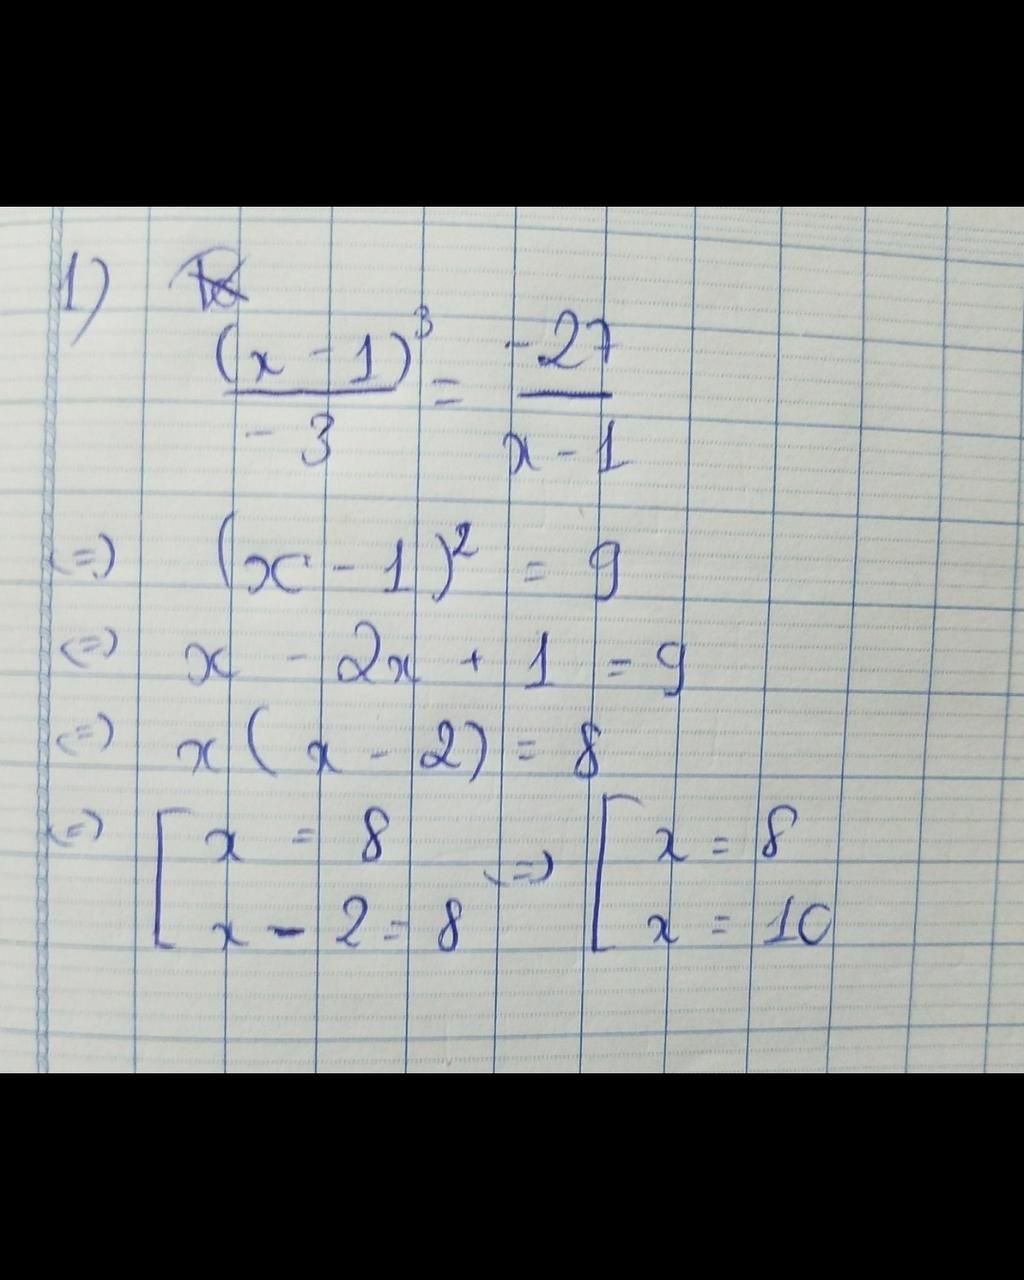 1)
(x - 1)³ / - 3 = - 27 / x - 1
<=> (x - 1)² = 9
<=> x - 2x + 1 = 9
<=> x ( x - 2) = 8
<=> [ x = 8 <=> [ x = 8
x - 2 = 8 x = 10